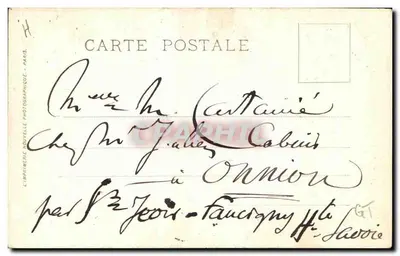 H
CARTE POSTALE
L'IMPRIMERIE NOUVELLE PHOTOGRAPHIQUE - PARIS
M. Castanié
chez Mr Julien Cabius
à Onnion
par St Jeoire - Faucigny Hte
Savoie